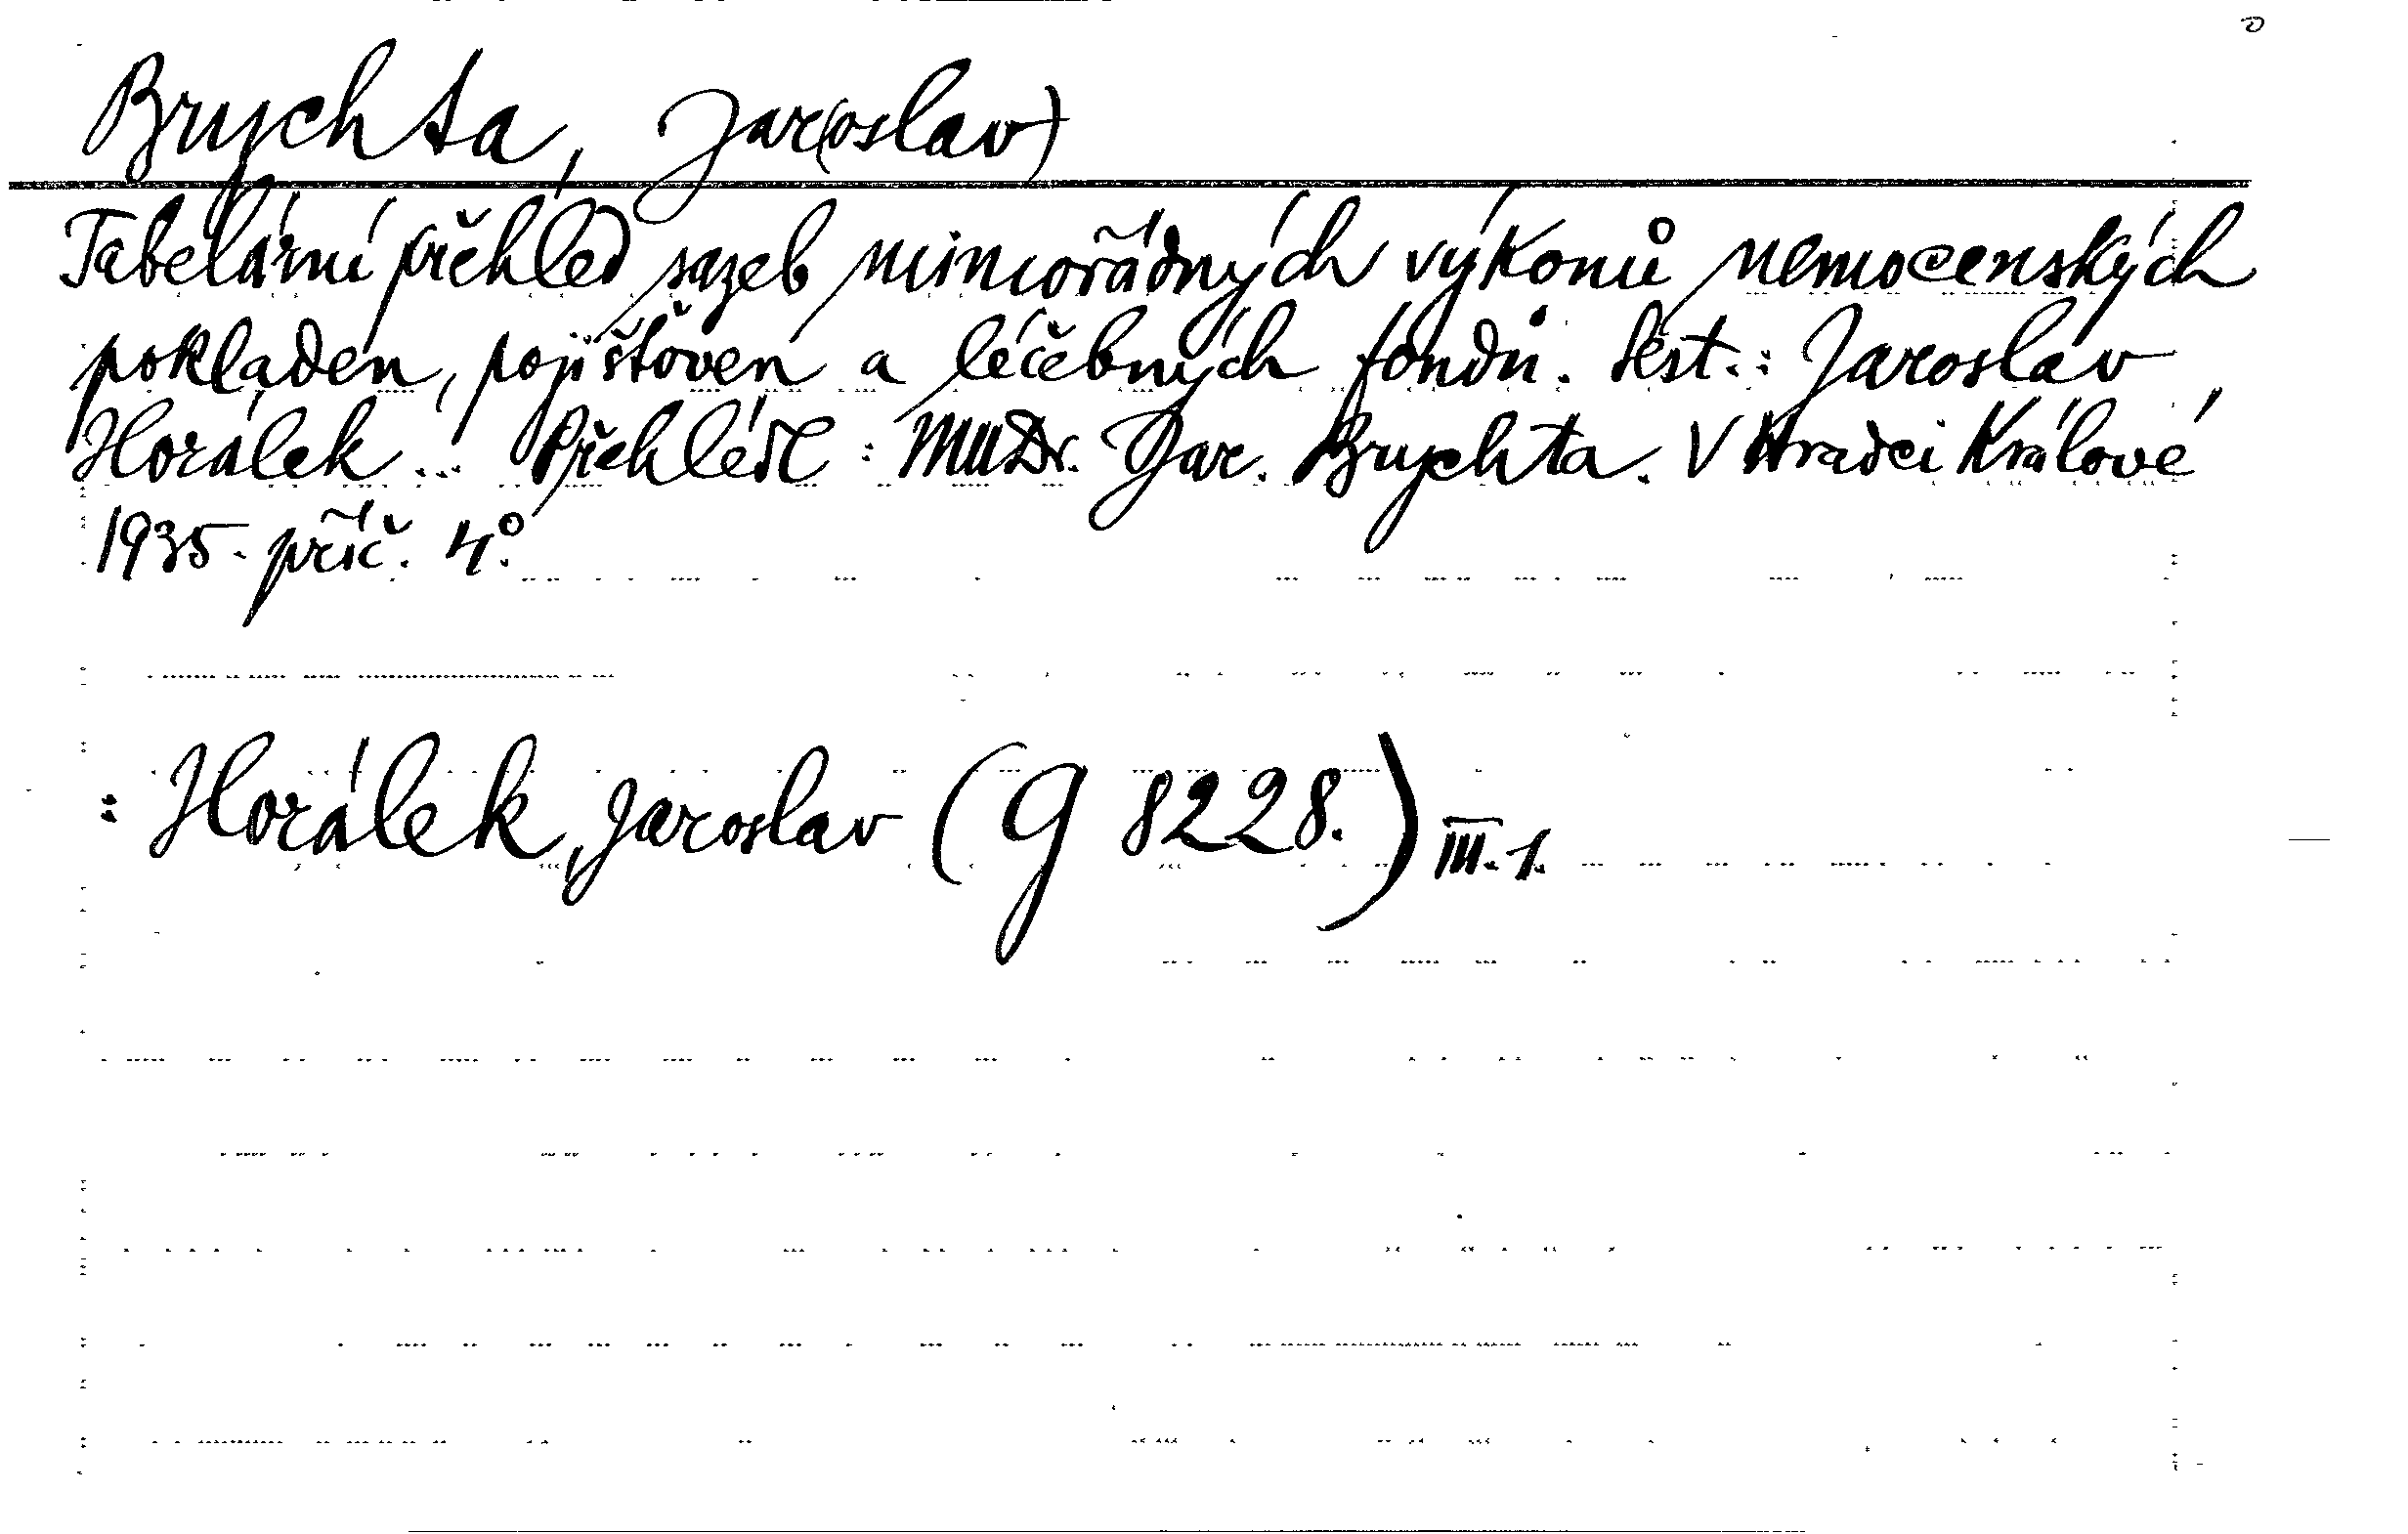 Brychta, Jar(oslav)
Tabelární přehled sazeb mimořádných výkonů nemocenských
pokladen, pojišťoven a léčebných fondů. Sest.: Jaroslav
Horálek... Přehlédl: MUDr. Jar. Brychta. V Hradci Králové
1935. příč. 4°.
: Horálek, Jaroslav (G 8228.) III. 1.